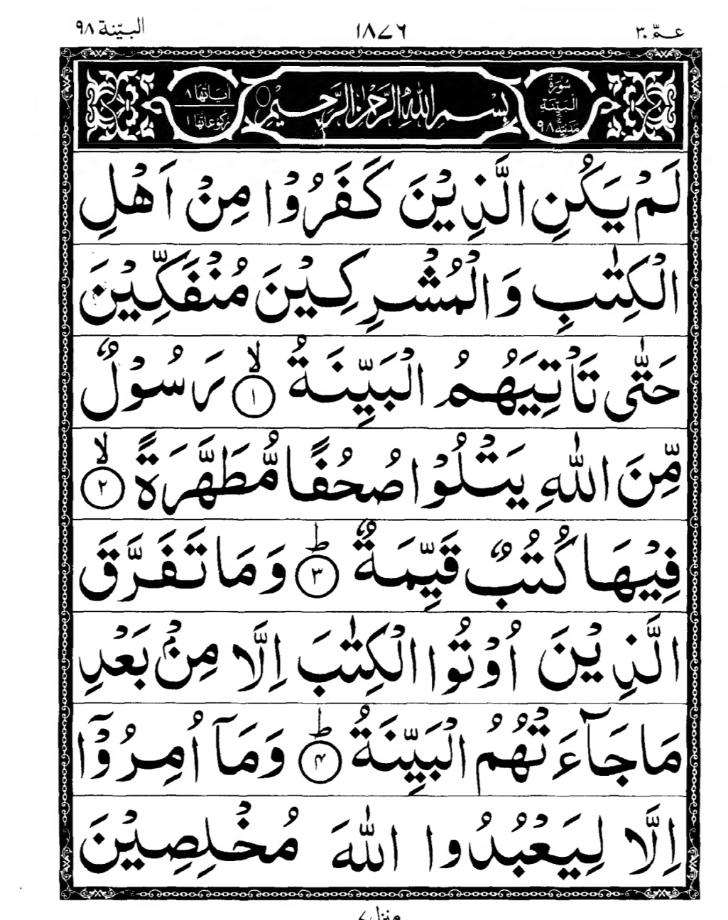 عـمّ ٣٠
١٨٧٦
البيّنة ٩٨
سُوْرَةُ
الْبَيِّنَةِ
مَدَنِيَّة ٩٨
بِسْمِ اللّٰهِ الرَّحْمٰنِ الرَّحِيْمِ
اٰيَاتُهَا ٨
رُكُوْعَاتُهَا ١
لَمْ يَكُنِ الَّذِيْنَ كَفَرُوْا مِنْ اَهْلِ
الْكِتٰبِ وَالْمُشْرِكِيْنَ مُنْفَكِّيْنَ
حَتّٰى تَاْتِيَهُمُ الْبَيِّنَةُ ۙ﴿١﴾ رَسُوْلٌ
مِّنَ اللّٰهِ يَتْلُوْا صُحُفًا مُّطَهَّرَةً ۙ﴿٢﴾
فِيْهَا كُتُبٌ قَيِّمَةٌ ؕ﴿٣﴾ وَمَا تَفَرَّقَ
الَّذِيْنَ اُوْتُوا الْكِتٰبَ اِلَّا مِنْۢ بَعْدِ
مَا جَآءَتْهُمُ الْبَيِّنَةُ ؕ﴿٤﴾ وَمَاۤ اُمِرُوْۤا
اِلَّا لِيَعْبُدُوا اللّٰهَ مُخْلِصِيْنَ
منزل ٧